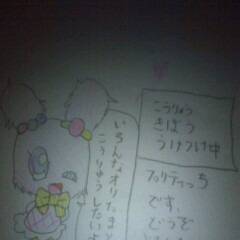 こうりゅう
きぼう
うけつけ中
プリティっち
です。
どうぞ
いろんなオリたまと
こうりゅうしたいよ